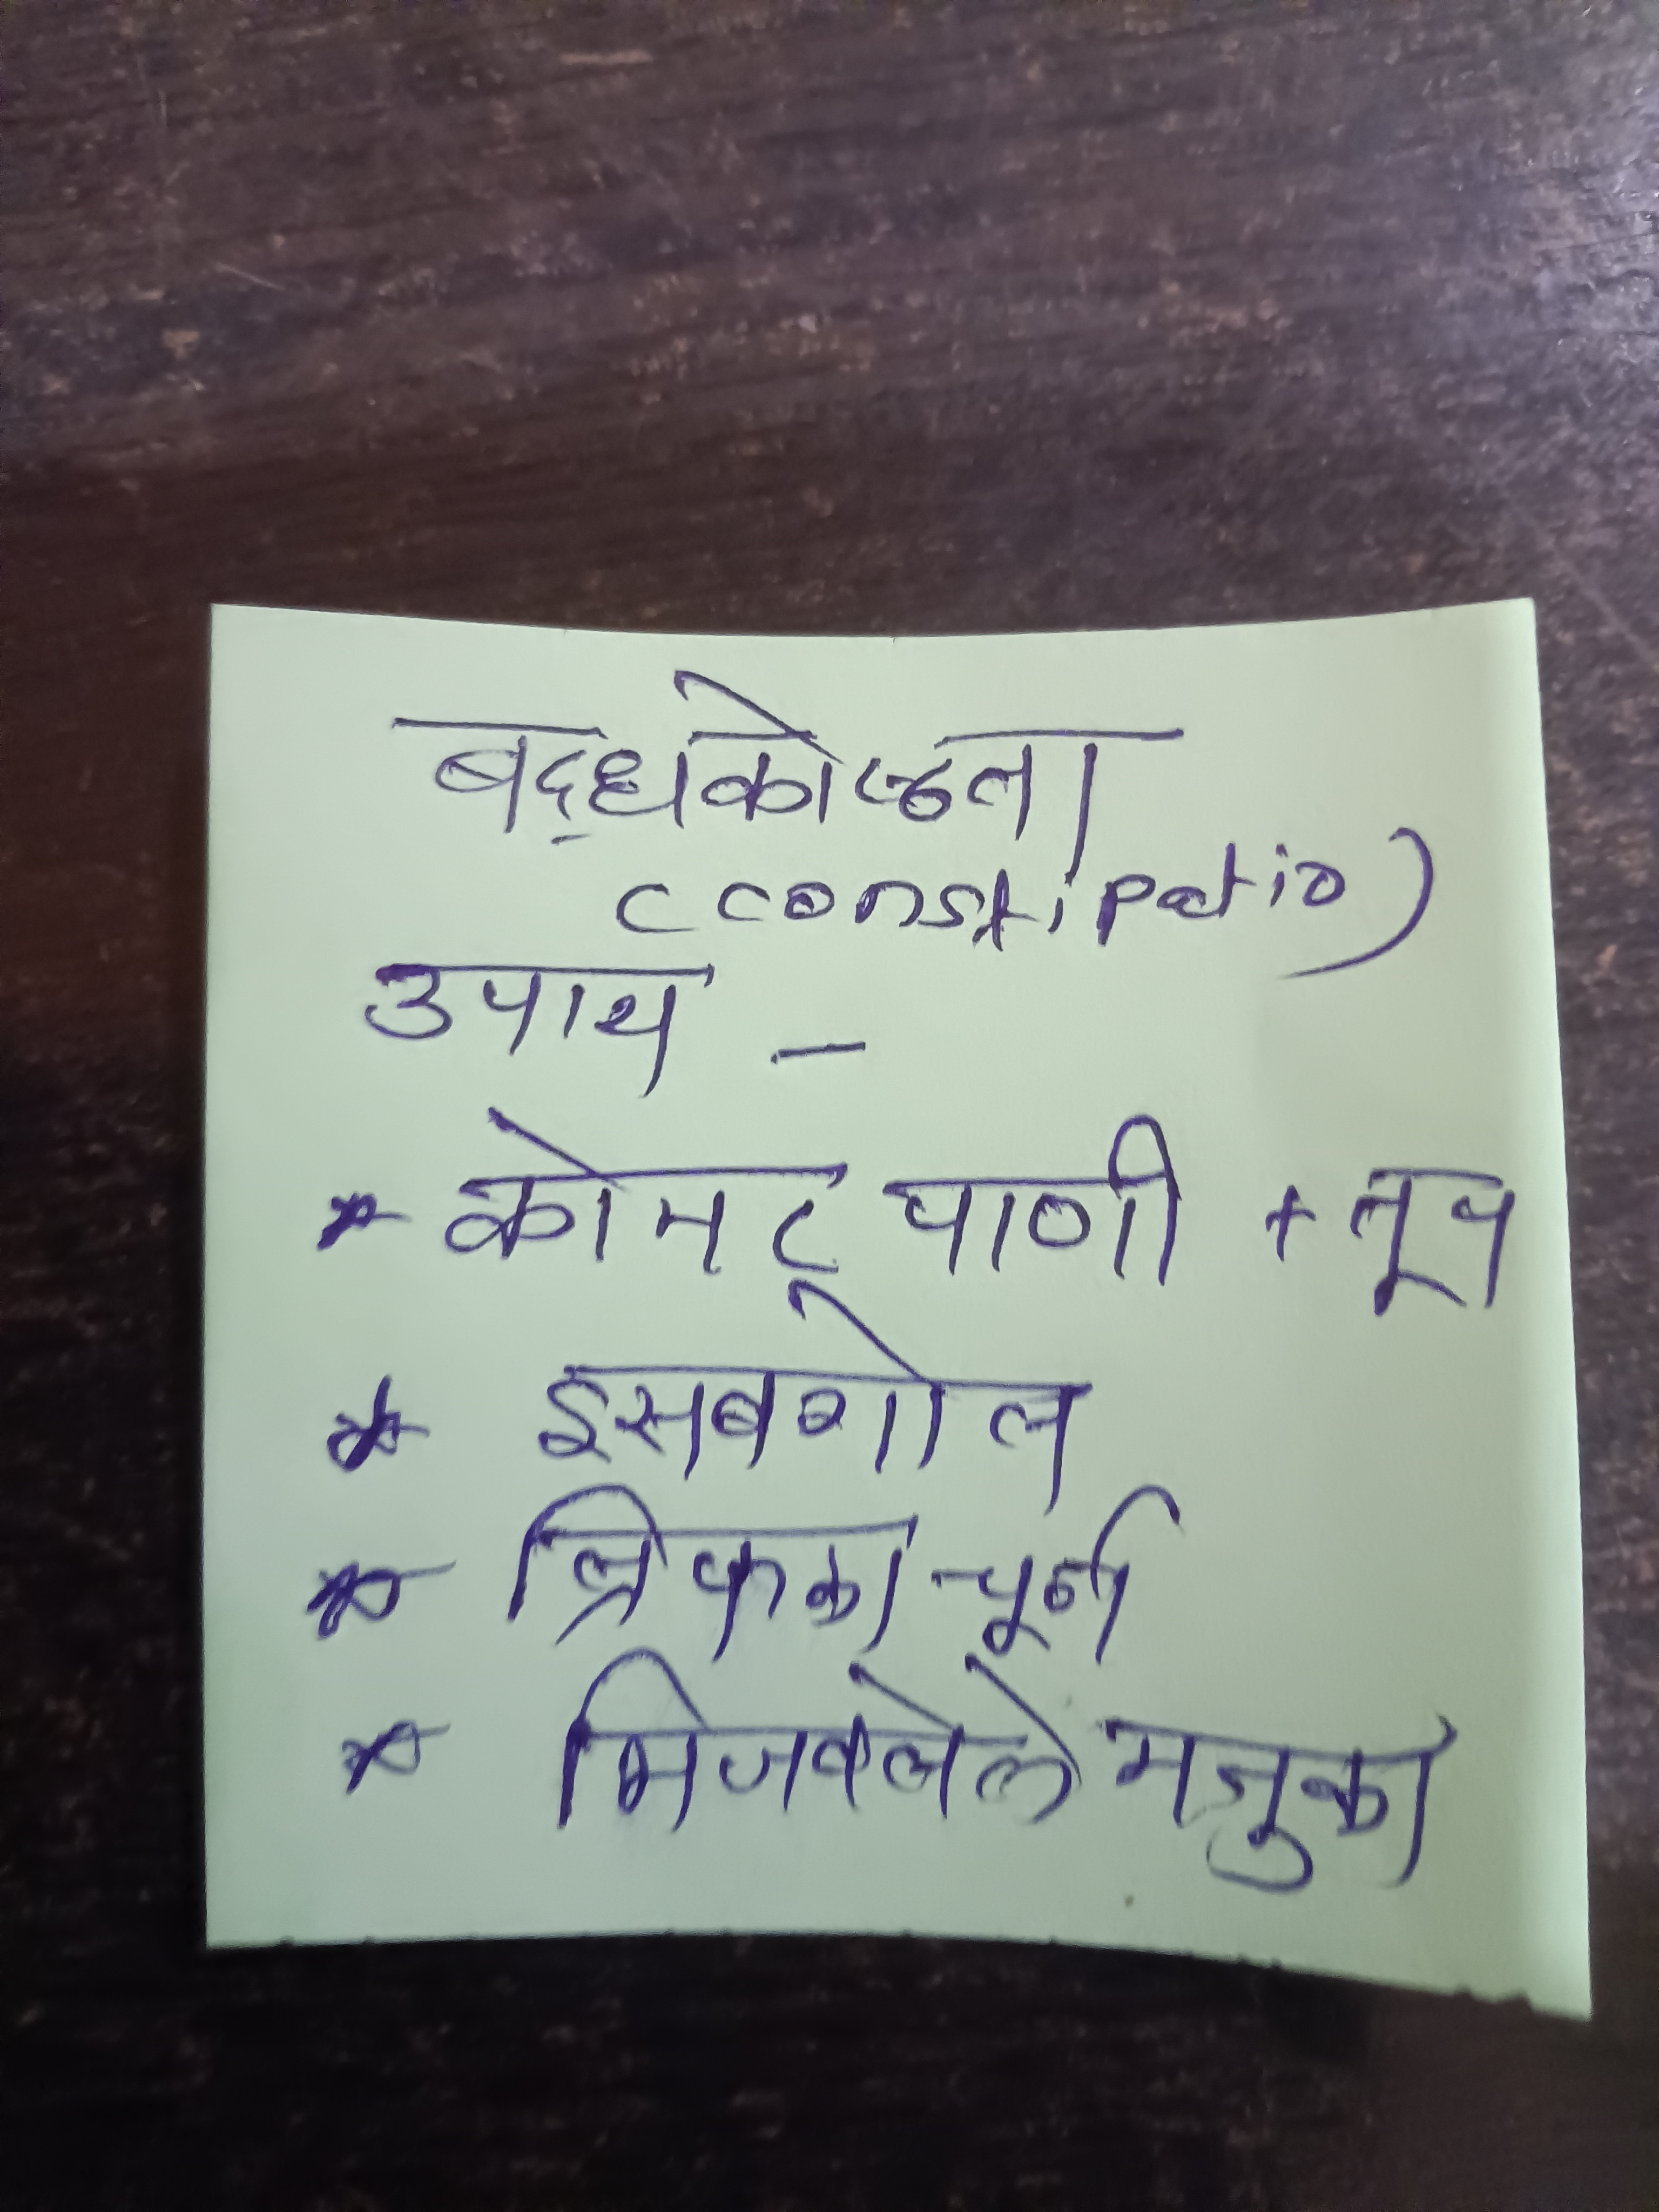 बद्धकोष्ठता
(constipatio)
उपाय -
* कोमट पाणी + तूप
* इसबगोल
* त्रिफळा चूर्ण
* भिजवलेले मनुका